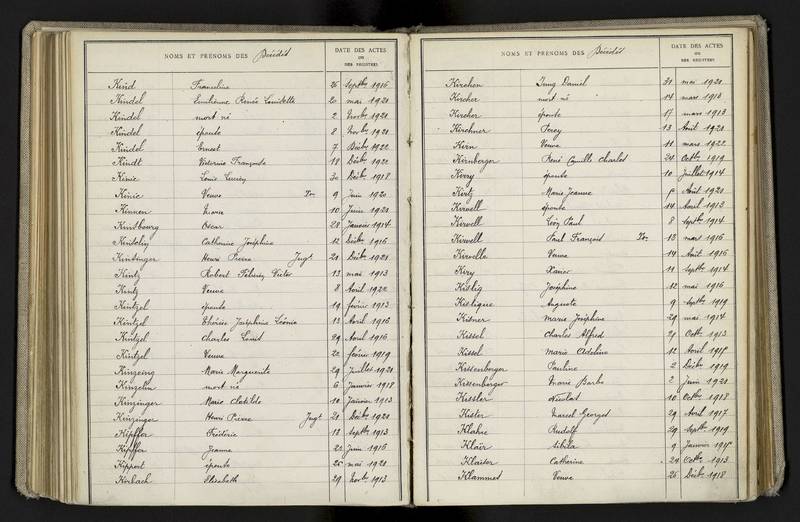 NOMS ET PRÉNOMS DES Décédés
DATE DES ACTES
OU
DES REGISTRES
Kind Franceline 26 Septbre 1916
Kindel Emilienne Renée Louisette 2 mai 1920
Kindel mort né 2 Novbre 1920
Kindel épouse 8 Novbre 1920
Kindel Ernest 7 Décbre 1922
Kindt Victorine Françoise 18 Décbre 1920
Kinic Louis 30 Décbre 1918
Kinic Veuve Ton 9 Juin 1920
Kinnen 10 Juin 1920
Kintbourg Oscar 28 Janvier 1914
Catherine Joséphine 12 Décbre 1916
Kintzinger Henri Pierre Jugt 20 Décbre 1920
Kintz Robert Victor 13 mai 1913
Kintz Veuve 8 Avril 1922
Kintzel épouse 19 février 1913
Kintzel Joséphine Léonie 13 Avril 1916
Kintzel Charles Louis 29 Avril 1916
Kintzel Veuve 22 février 1919
Kinzeing Marie Marguerite 29 Juillet 1920
Kinzelin mort né 6 Janvier 1918
Kinzinger Marie Clotilde 10 Janvier 1913
Kinzinger Henri Pierre Jugt 20 Décbre 1920
Kipffer Frédéric 18 Septbre 1913
Kipffer Jeanne 22 Juin 1916
Kippert épouse 25 mai 1920
Kirbach Elisabeth 29 Novbre 1913
NOMS ET PRÉNOMS DES Décédés
DATE DES ACTES
OU
DES REGISTRES
Kirchen Daniel 31 mai 1920
Kircher mort né 14 mars 1913
Kircher épouse 17 mars 1913
Kirchner Percy 13 Août 1920
Kirn Veuve 11 mars 1922
Kirnberger René Camille Charles 24 Octbre 1919
Kirry épouse 10 Juillet 1914
Kirtz Marie Jeanne 6 Août 1920
Kirvell épouse 14 Avril 1913
Kirwell Léon Paul 8 Septbre 1914
Kirwell Paul François Ton 13 mars 1916
Kirwelle Veuve 14 Août 1916
Kiry Xavier 11 Septbre 1914
Kislig Joséphine 12 mai 1916
Kislique Auguste 9 Septbre 1919
Kisner Marie Joséphine 29 mai 1914
Kissel Charles Alfred 21 Octbre 1913
Kissel Marie Adeline 12 Avril 1917
Kissenberger Pauline 2 Décbre 1919
Kissenberger Marie Barbe 2 Juin 1920
Kissler Nicolas 10 Octbre 1918
Kister Marcel Georges 29 Avril 1917
Klahne Rudolf 29 Septbre 1919
Klair Sibila 9 Janvier
Klaiser Catherine 24 Octbre 1913
Klammet Veuve 26 Décbre 1918